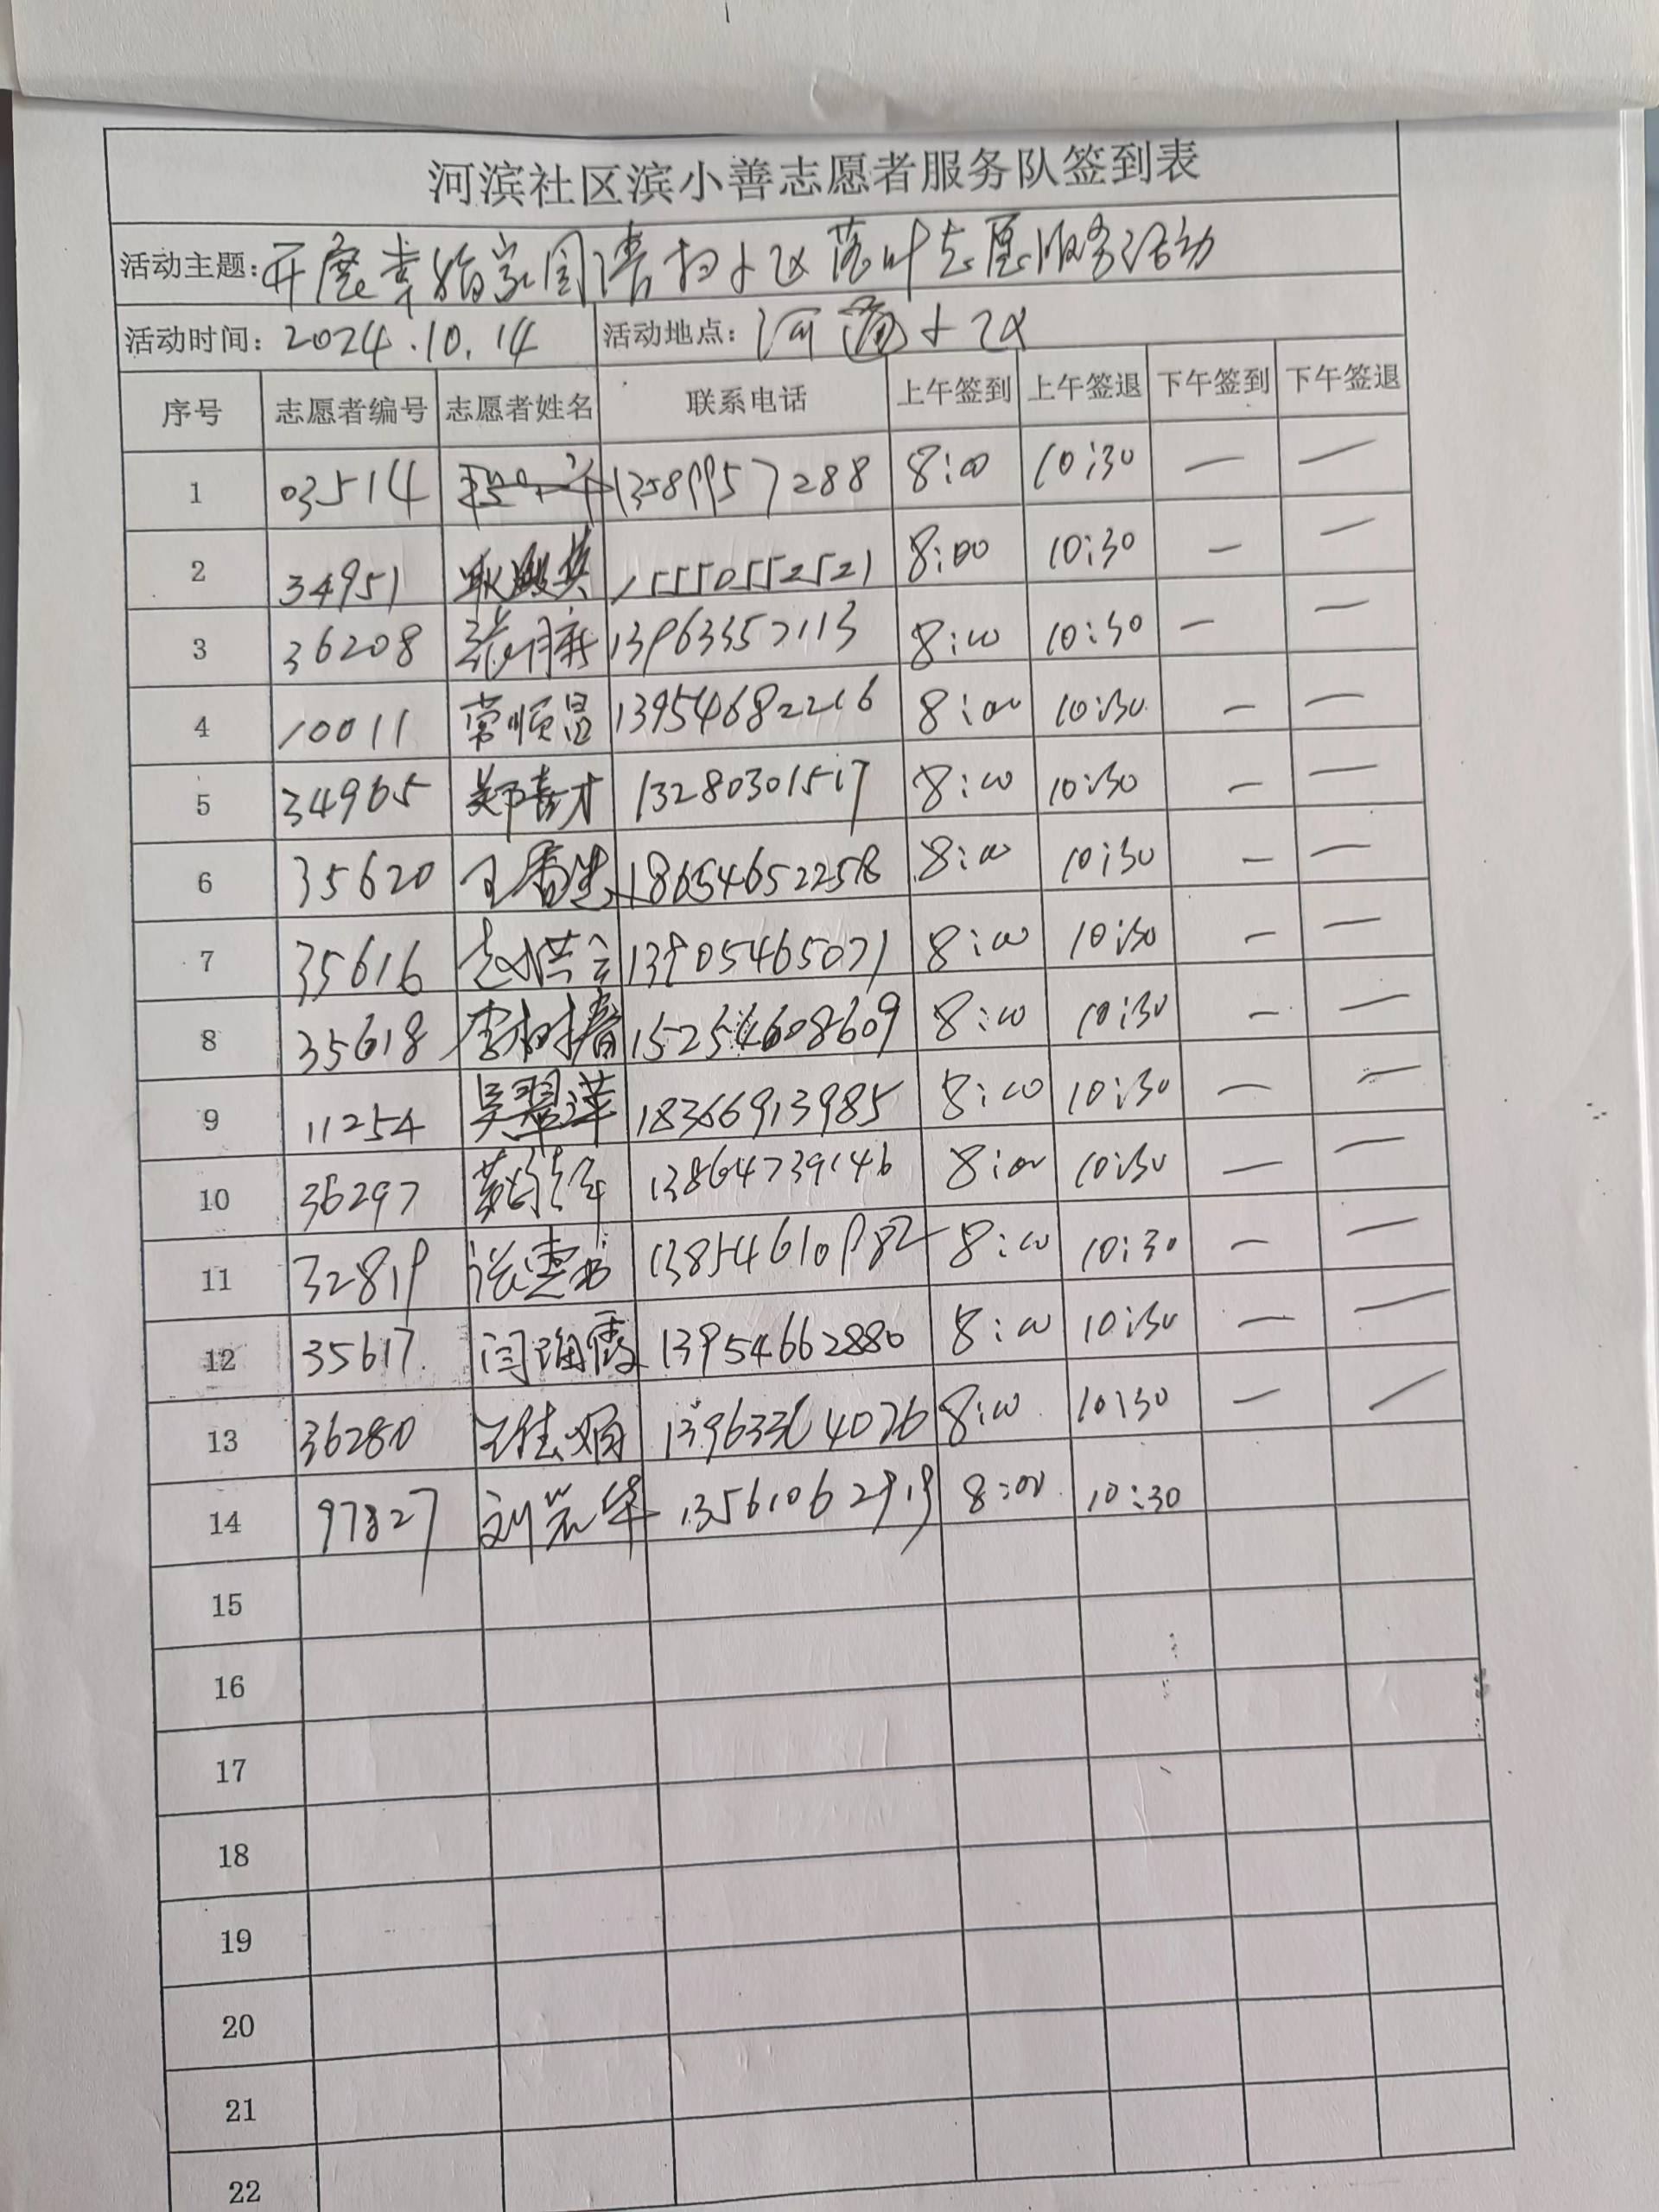 河滨社区滨小善志愿者服务队签到表
活动主题: 开展幸福家园清扫小区落叶志愿服务活动
活动时间: 2024.10.14 活动地点: 河滨小区
序号 志愿者编号 志愿者姓名 联系电话 上午签到 上午签退 下午签到 下午签退
1 03514 13589957288 8:00 10:30 — —
2 34951 15550552521 8:00 10:30 — —
3 36208 13963357113 8:00 10:30 — —
4 10011 常顺昌 13954682216 8:00 10:30 — —
5 34965 郑春才 13280301517 8:00 10:30 — —
6 35620 王香 18654652258 8:00 10:30 — —
7 35616 13905465071 8:00 10:30 — —
8 35618 李树春 15254608609 8:00 10:30 — —
9 11254 吴翠莲 18366913985 8:00 10:30 — —
10 36297 黄 13864739146 8:00 10:30 — —
11 32819 张 13854610982 8:00 10:30 — —
12 35617 闫海霞 13954662880 8:00 10:30 — —
13 36280 王桂娟 13963364026 8:00 10:30 — —
14 97827 刘爱华 13561062919 8:00 10:30
15
16
17
18
19
20
21
22